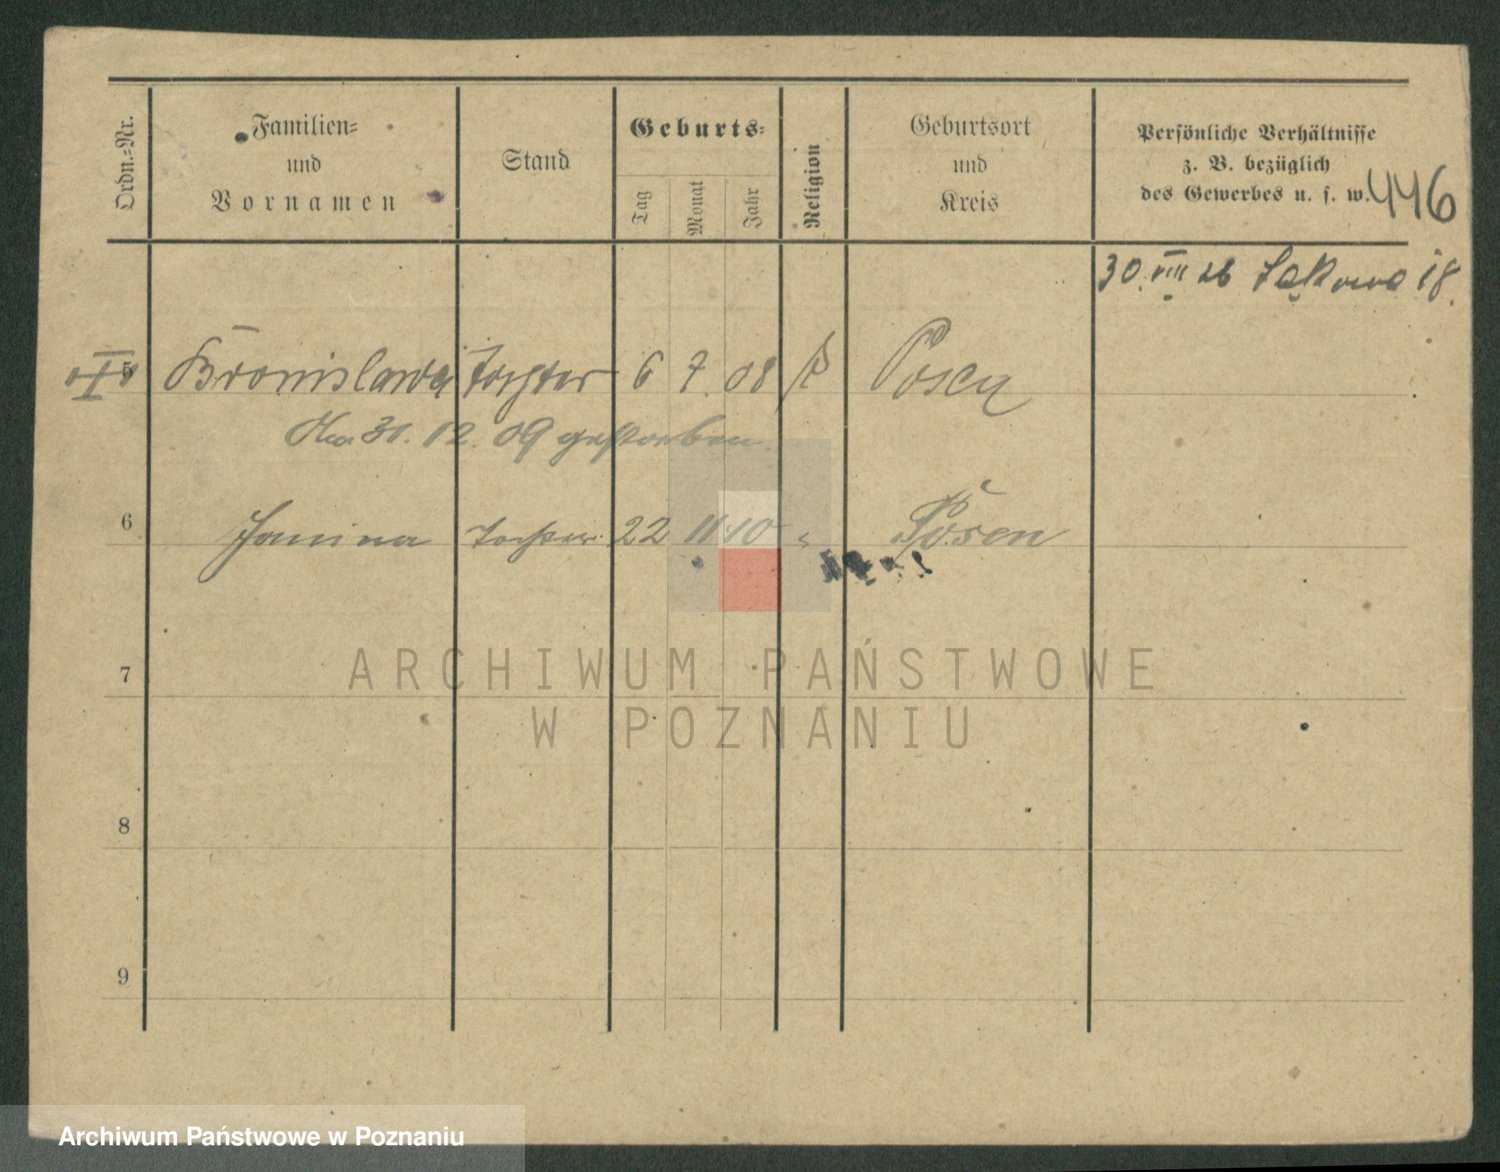 Ordn.=Nr.
Familien=
und
Vornamen
Stand
Geburts=
Tag
Monat
Jahr
Religion
Geburtsort
und
Kreis
Persönliche Verhältnisse
z. B. bezüglich
des Gewerbes u. s. w.
446
30. VIII 26 Łąkowa 18.
5 Bronislawa Tochter 6 7. 08 k Posen
Am 31. 12. 09 gestorben
6 Janina Tochter 22 11 10 " Posen
7
8
9
ARCHIWUM PAŃSTWOWE
W POZNANIU
Archiwum Państwowe w Poznaniu